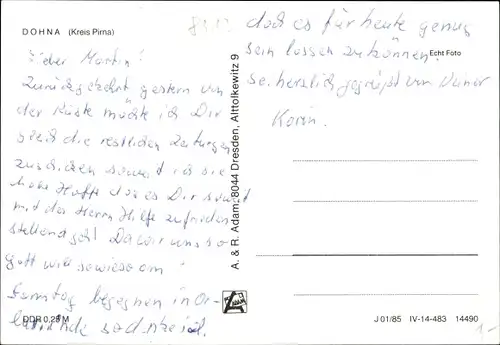 DOHNA (Kreis Pirna)
Lieber Martin!
Zurückgekehrt gestern von
der Küste möchte ich Dir
gleich die restlichen Zeitungen
zuschicken soweit ich sie
habe Hoffe das es Dir soweit
mit des Herrn Hilfe zufrieden
stellend geht Da wir uns so
Gott will sowieso am
Samstag begegnen in
DDR 0,25 M
A. & R. Adam, 8044 Dresden, Alttolkewitz 9
daß es für heute genug
sein lassen zu können.
Echt Foto
Sei herzlich gegrüßt von Deiner
Karin.
ADAM
J 01/85 IV-14-483 14490
1,-